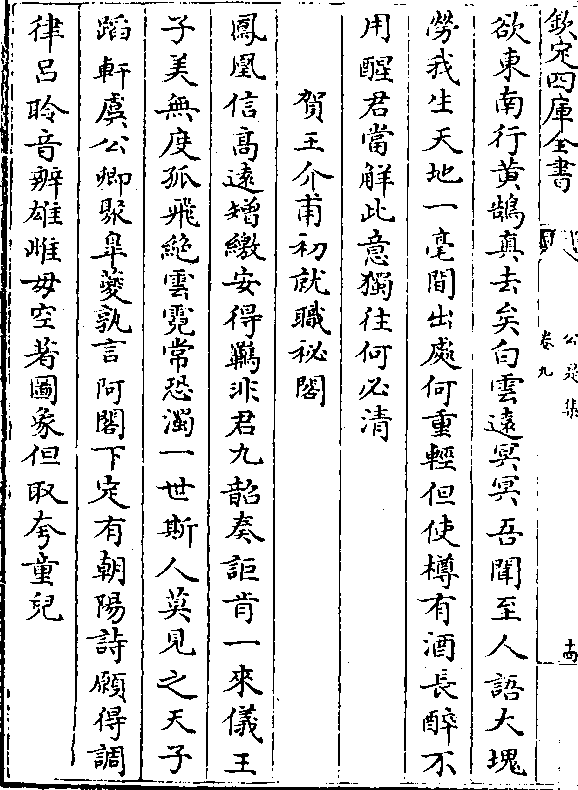 欽定四庫全書
公是集
卷九
十四
欲東南行黄鵠真去矣白雲遠冥冥吾聞至人語大塊
勞我生天地一毫間出處何重輕但使樽有酒長醉不
用醒君當解此意獨往何必清
賀王介甫初就職秘閣
鳳凰信髙遠矰繳安得羈非君九韶奏詎肯一來儀王
子美無度孤飛絶雲霓常恐濁一世斯人莫見之天子
蹈軒虞公卿聚臯夔孰言阿閣下定有朝陽詩願得調
律吕聆音辨雄雌毋空著圖象但取夸童兒